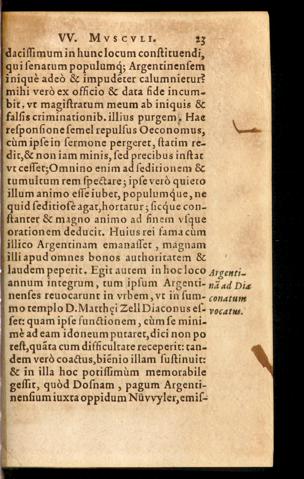 VV. MVSCVLI. 23
dacissimum in hunc locum constituendi,
qui senatum populumq́; Argentinensem
iniquè adeò & impudẽter calumnietur?
mihi verò ex officio & data fide incum-
bit, vt magistratum meum ab iniquis &
falsis criminationib. illius purgem. Hac
responsione semel repulsus Oeconomus,
cùm ipse in sermone pergeret, statim re-
dit, & non iam minis, sed precibus instat
vt cesset; Omnino enim ad seditionem &
tumultum rem spectare; ipse verò quieto
illum animo esse iubet, populumque, ne
quid seditiosè agat, hortatur; sicque con-
stanter & magno animo ad finem vsque
orationem deducit. Huius rei fama cùm
illico Argentinam emanasset, magnam
illi apud omnes bonos authoritatem &
laudem peperit. Egit autem in hoc loco
annum integrum, tum ipsum Argenti-
nenses reuocarunt in vrbem, vt in sum-
mo templo D. Matthęi Zelli Diaconus es-
set: quam ipse functionem, cùm se mini-
mè ad eam idoneum putaret, dici non po
test, quãta cum difficultate receperit: tan-
dem verò coactus, biẽnio illam sustinuit:
& in illa hoc potissimùm memorabile
gessit, quòd Dosnam, pagum Argenti-
nensium iuxta oppidum Nüvvyler, emis-
Argenti-
nã ad Dia
conatum
vocatus.